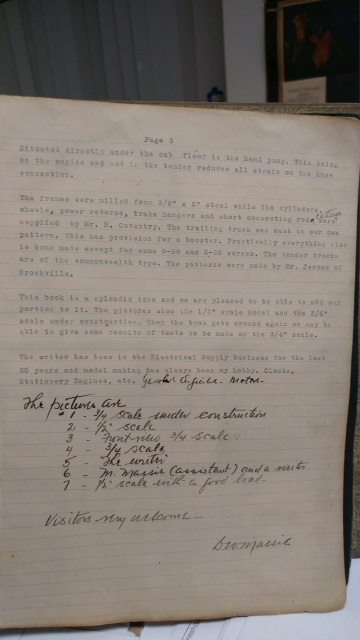 Page 3
Situated directly under the cab floor is the hand pump. This being
on the engine and not in the tender reduces all strain on the hose
connection.
The frames were milled from 3/8" x 2" steel while the cylinders,
wheels, power reverse, brake hangers and short connecting rods were
supplied by Mr. H. Coventry. The trailing truck was cast to our own
pattern. This has provision for a booster. Practically everything else
is home made except for some 0-80 and screws. The tender trucks
are of the commonwealth type. The patterns were made by Mr. Jerome of
Brockville.
This book is a splendid idea and we are pleased to be able to add our
portion to it. The pictures show the 1/2" scale model and the 3/4"
scale under construction. When the book gets around again we may be
able to give some results of tests to be made on the 3/4" scale.
The writer has been in the Electrical Supply business for the last
30 years and model making has always been my hobby, Clocks,
Stationery Engines, etc. Gasoline Engines - Motors -
The pictures are
1 - 3/4 scale under construction
2 - 1/2" scale
3 - Front view 3/4 scale
4 - 3/4 scale
5 - "The writer"
6 - M. Massie (assistant) and a visitor
7 - 1/2" scale with a good load -
Visitors very welcome -
Massie